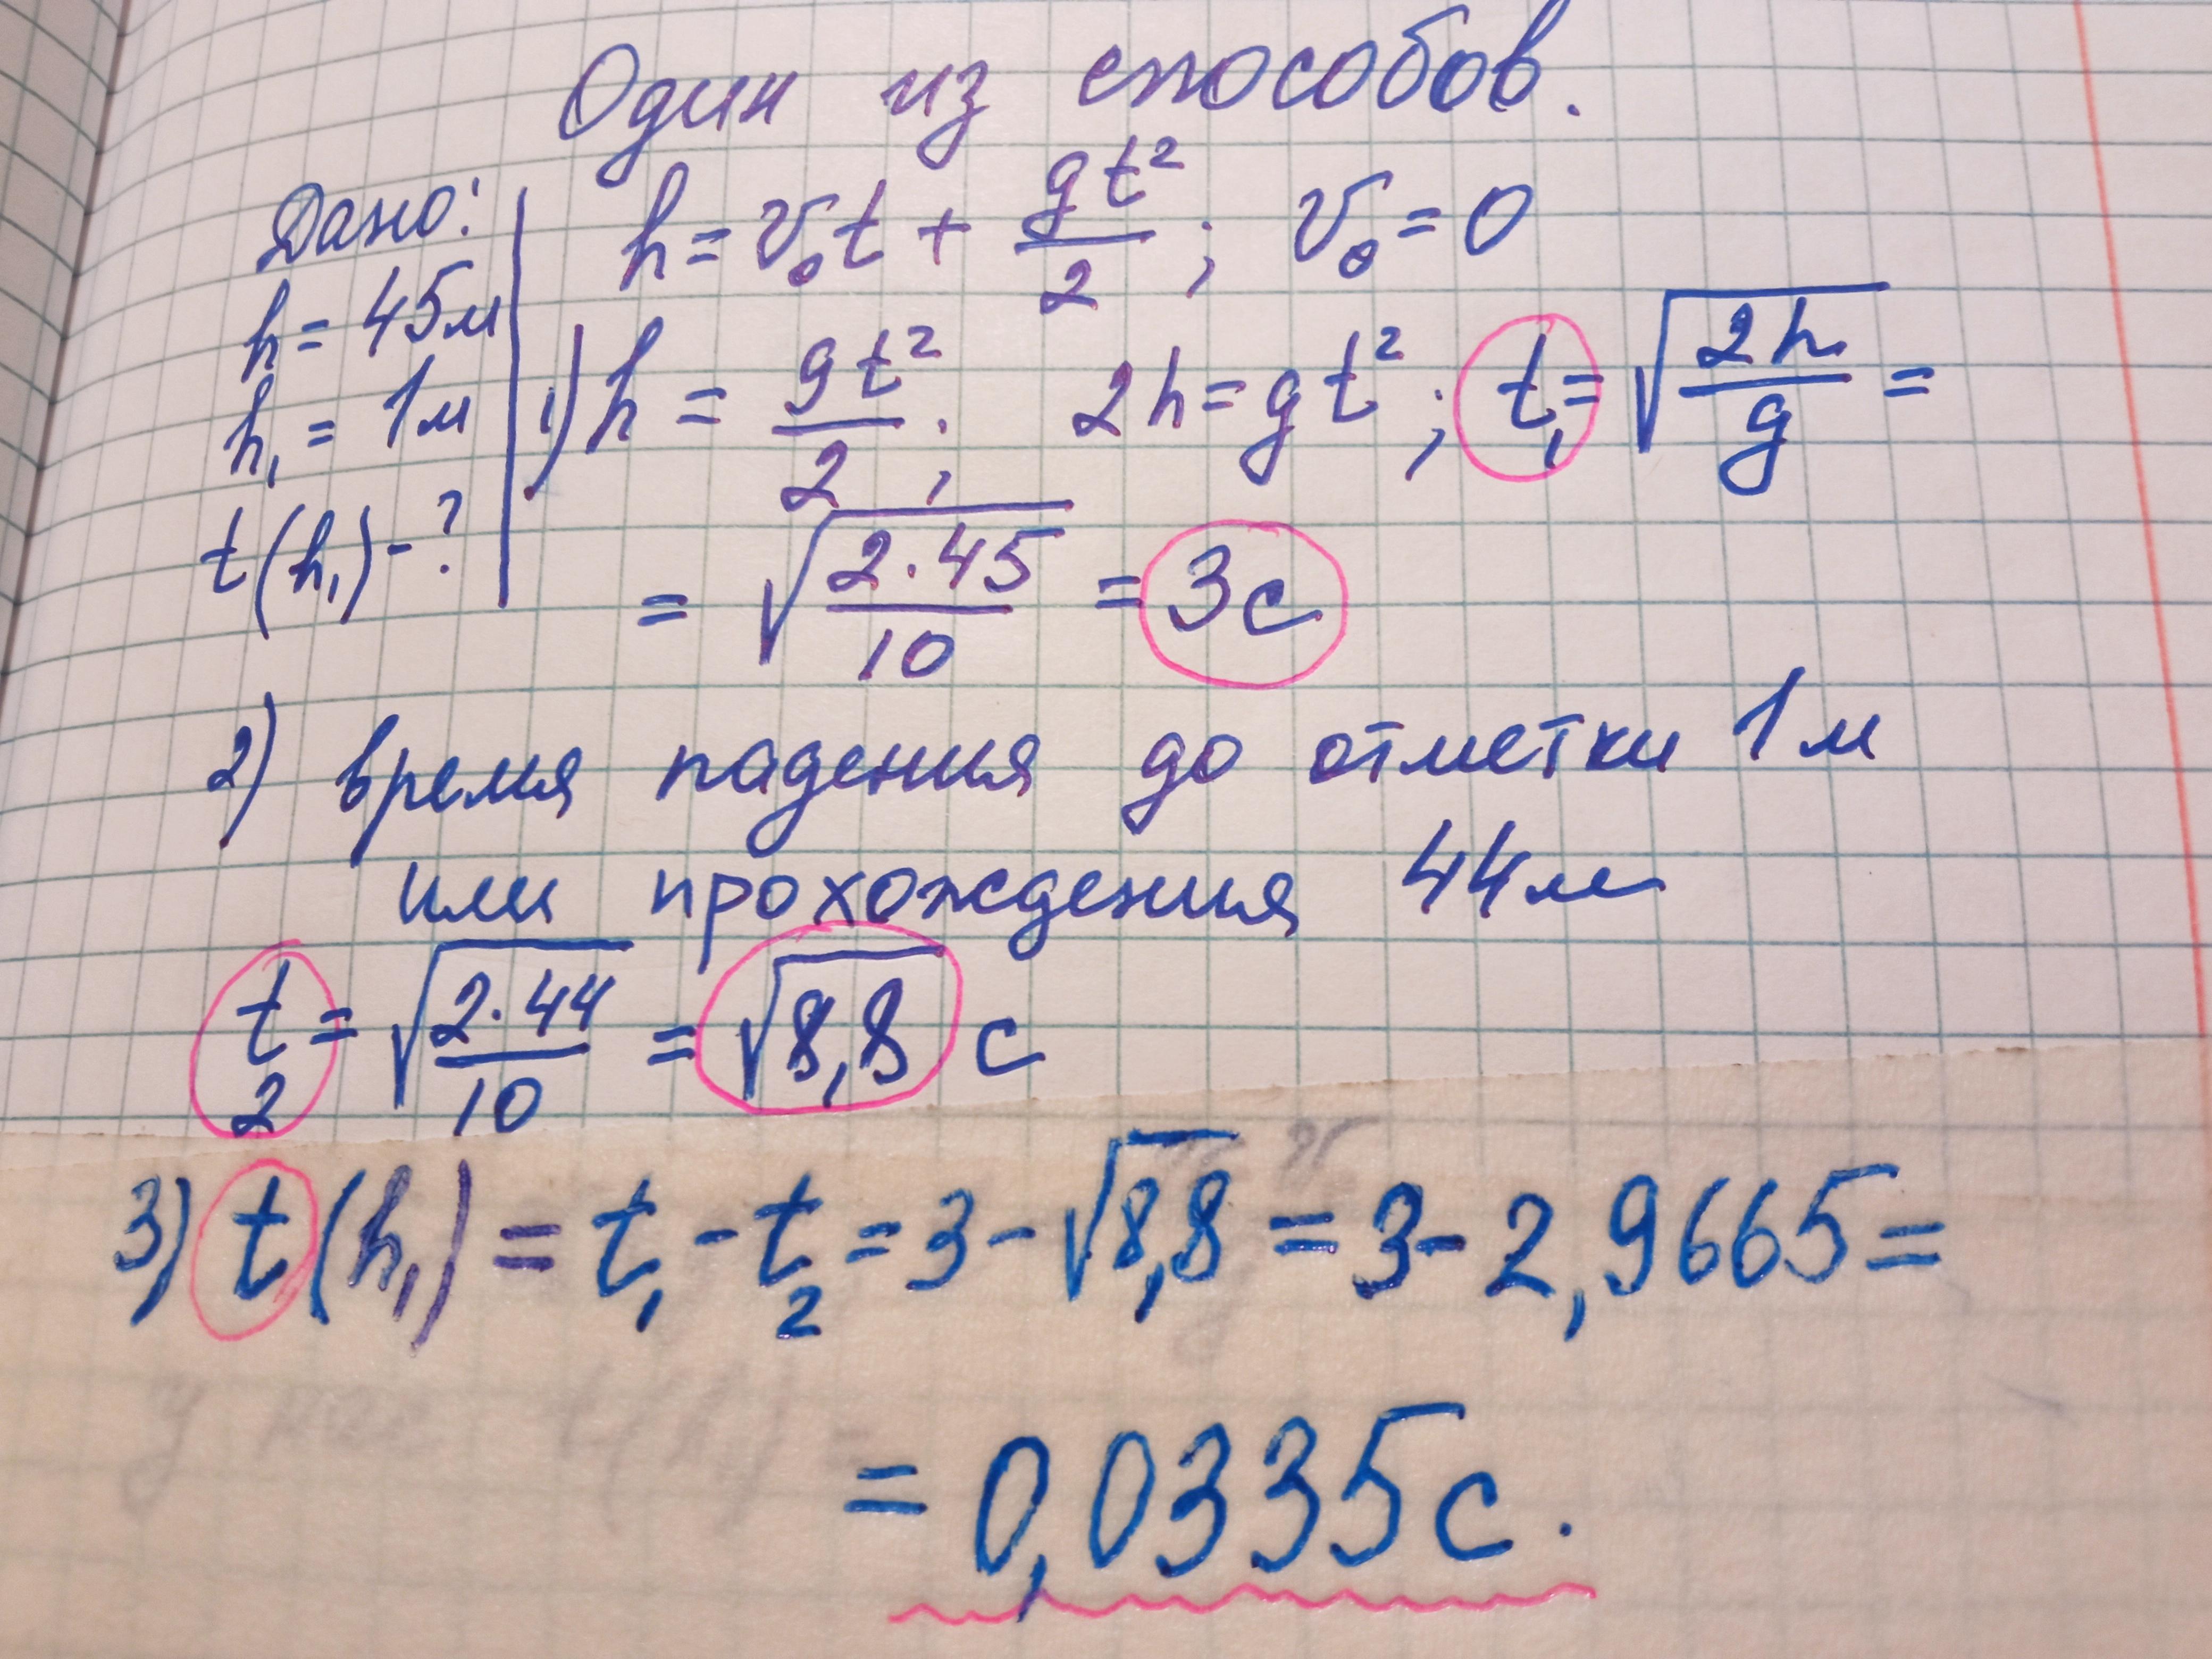 Один из способов.
Дано:
h = 45м
h₁ = 1м
t(h₁) - ?
h = v₀t + gt²/2 ; v₀ = 0
1) h = gt²/2 ; 2h = gt² ; t₁ = √(2h/g) =
= √(2·45/10) = 3с
2) время падения до отметки 1м
или прохождения 44м
t₂ = √(2·44/10) = √8,8 с
3) t(h₁) = t₁ - t₂ = 3 - √8,8 = 3 - 2,9665 =
= 0,0335с.